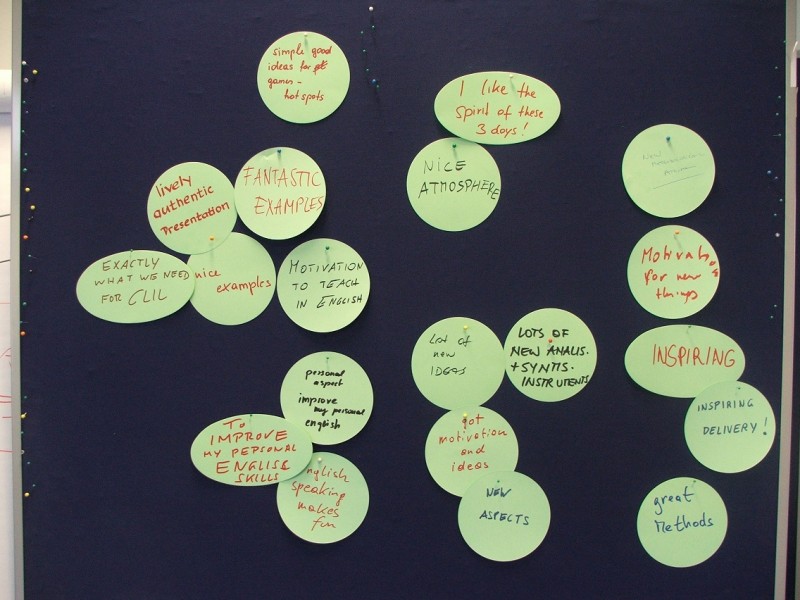 simple good
ideas for
games -
hot spots
I like the
spirit of these
3 days!
NICE
ATMOSPHERE
NEW
lively
authentic
Presentation
FANTASTIC
EXAMPLES
EXACTLY
WHAT WE NEED
FOR CLIL
nice
examples
MOTIVATION
TO TEACH
IN ENGLISH
Motivation
for new
things
LOT of
new
IDEAS
LOTS OF
NEW ANALIS.
+ SYNTIS.
INSTRUMENTS
INSPIRING
INSPIRING
DELIVERY!
personal
aspect
improve
my personal
english
To
IMPROVE
MY PERSONAL
ENGLISH
SKILLS
nglish
speaking
makes
fun
got
motivation
and
ideas
NEW
ASPECTS
great
Methods